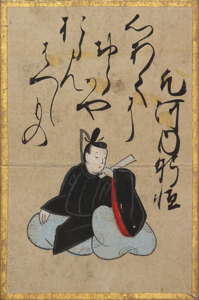 凡河内躬恒
心あてに
おらはや
おらん
はつしもの